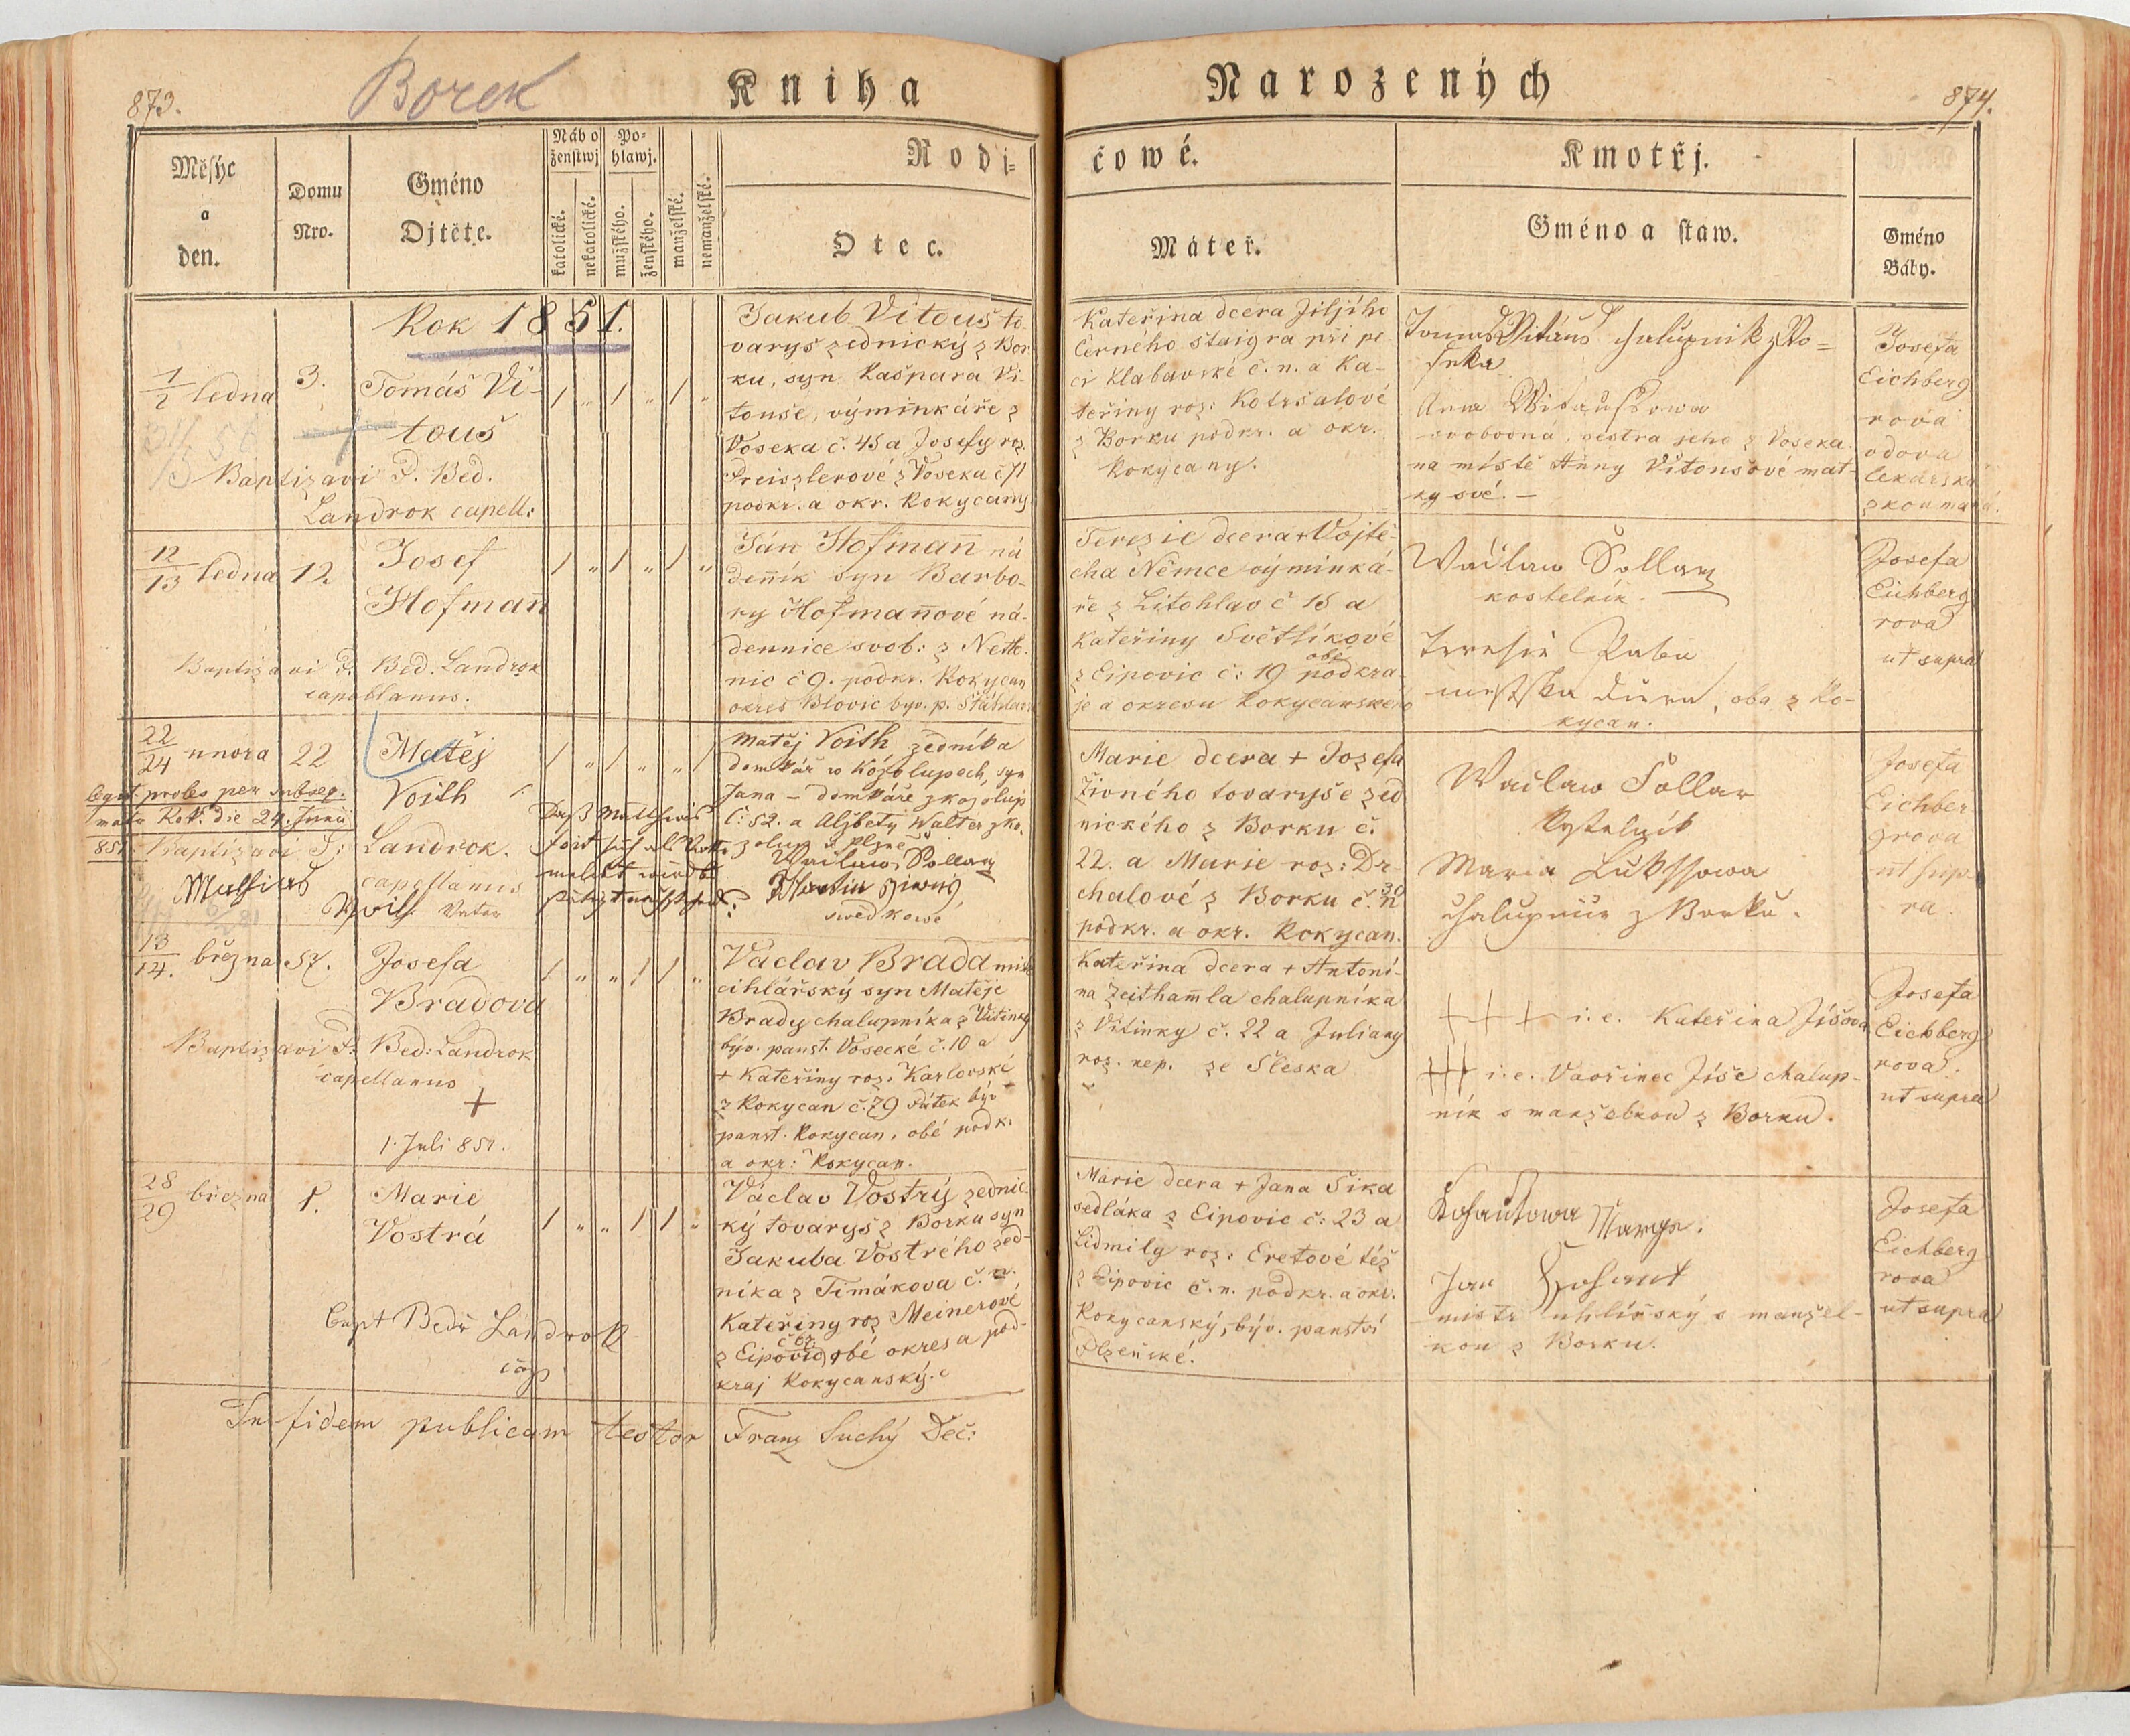 873.
Borek
Kniha
Narozených
874.
Měsýc
a
den.
Domu
Nro.
Gméno
Djtěte.
Nábo
ženstwj
Po=
hlawj.
katolické.
nekatolické.
mužského.
ženského.
manželské.
nemanželské.
Rodi=
čowé.
Otec.
Máteř.
Kmotřj.
Gméno a staw.
Gméno
Báby.
Rok 1851.
1/2 ledna
3.
Tomáš Vi-
touš
Baptizavi P. Bed.
Landrok capell:
Jakub Vitouš to-
varyš zednický z Bor
ku, syn Kašpara Vi-
touše, výminkáře z
Voseka č. 45 a Josefy roz.
Preiszlerové z Voseka č 71
podkr. a okr. Rokycany
Kateřina dcera Jiljího
Černého štaigra při pe
ci Klabavské č. n. a Ka-
teřiny roz: Kotršalové
z Borku podkr. a okr.
Rokycany.
Tomas Vitaus chalupnik z Vo=
seka
Anna Witaussowa
svobodná, sestra jeho z Voseka
na místě Anny Vitoušové mat-
ky své. —
Josefa
Eichberg
rova
vdova
lekařská
zkoumaná.
12/13 ledna
12.
Josef
Hofmañ
Baptizavi P. Bed. Landrok
capellanus.
Ján Hofmañ ná
deñík syn Barbo-
ry Hofmañové ná-
dennice svob: z Netto.
nic č 9. podkr. Rokycan
okres Blovic byv. p. Štáhlav
Terezie dcera + Vojtě-
cha Němce výminká-
ře z Litohlav č 15 a
Kateřiny Světlíkové
z Eipovic č: 19 obé podkra
je a okresu Rokycanského
Waclaw Sollar
kostelník.
Teresie
oba z Ro-
kycan.
Josefa
Eichberg
rova
ut supra
22/24 unora
22
Matěj
Voith
legit. proles per subseq.
matr. Rok. die 24. Junii
851. Baptizavi P:
Landrok.
capellanus
Mathias
Voith Vater
Daß Mathias
Matěj Voith zedníka
domkář w Kozolupech, syn
Jana — domkáře z Kozolup
č: 52. a Aljbety Walter z Ko.
zolup u Plzně
Waclaw Sollar
Martin Ziwný
swedkowé
Marie dcera + Josefa
Živného tovaryše zed
nického z Borku č.
22. a Marie roz: Dr-
chalové z Borku č. 30
podkr. a okr. Rokycan.
Waclaw Sollar
Kostelník
Maria Lukssowa
chalupnice z Borku.
Josefa
Eichber
grova
ut sup-
ra.
13/14. března
57.
Josefa
Bradova
Baptizavi P. Bed: Landrok
capellanus
+
1. Juli 851.
Václav Brada mis
cihlářský syn Matěje
Brady chalupníka z Vitinky
býv. panst. Vosecké č. 10 a
+ Kateřiny roz. Karlovské
z Rokycan č. 79 Pátek býv
panst. Rokycan, obé podk.
a okr: Rokycan.
Kateřina dcera + Antoní-
na Zeithamla chalupníka
z Vitinky č. 22 a Juliany
roz. nep. ze Šleska
+ + + i. e. Kateřina Jíšova
+++ i. e. Vavřinec Jíše chalup-
ník s manželkou z Borku.
Josefa
Eichberg
rova.
ut supra
28/29 března
1.
Marie
Vostrá
bapt Bedř Landrok
cap.
Václav Vostrý zednic
ký tovaryš z Borku syn
Jakuba Vostrého zed-
níka z Timákova č. n.
Kateřiny roz Meinerové
z Eipovic, obé okres a pod-
kraj Rokycanský.
Marie dcera + Jana Šika
sedláka z Eipovic č: 23 a
Lidmily roz: Eretové též
z Eipovic č. n. podkr. a okr.
Rokycanský, býv. panství
Plzeňské.
Kohautowa Marye.
Jan Kohaut
mistr uhlířský s manžel-
kou z Borku.
Josefa
Eichberg
rova
ut supra
In fidem publicam testor Franz Suchý Deč: